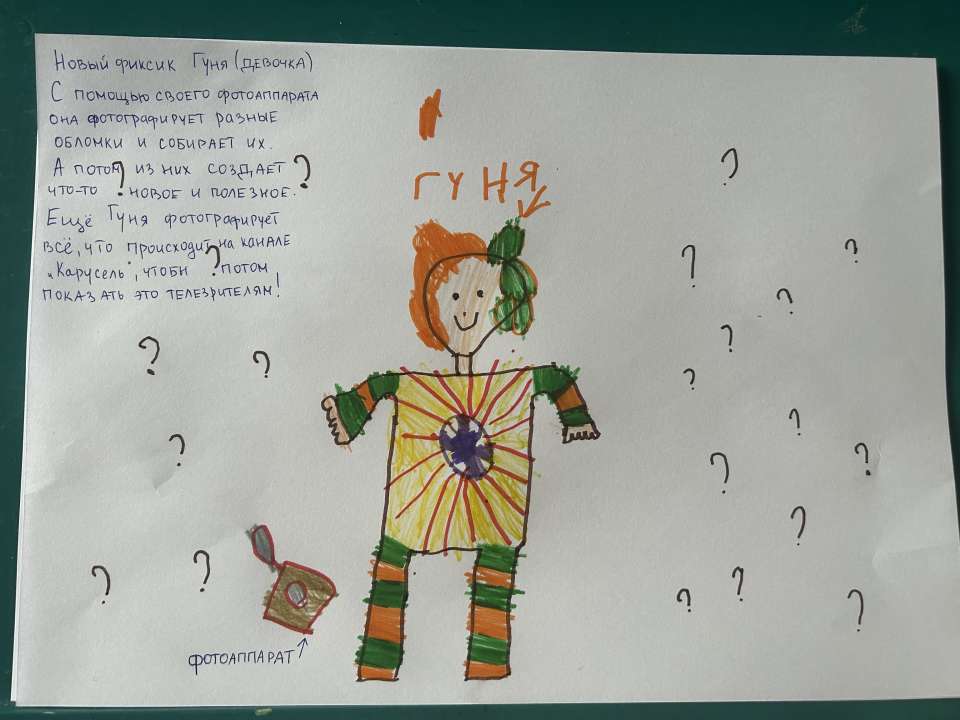 Новый фиксик Гуня (девочка)
С помощью своего фотоаппарата
она фотографирует разные
обломки и собирает их.
А потом ? из них создаёт ?
что-то новое и полезное.
Ещё Гуня фотографирует
всё, что происходит на канале
"Карусель", чтоби ? потом
показать это телезрителям!
ГУНЯ
?
? ?
?
?
? ?
?
? ?
? ?
?
? ? ? ? ?
фотоаппарат